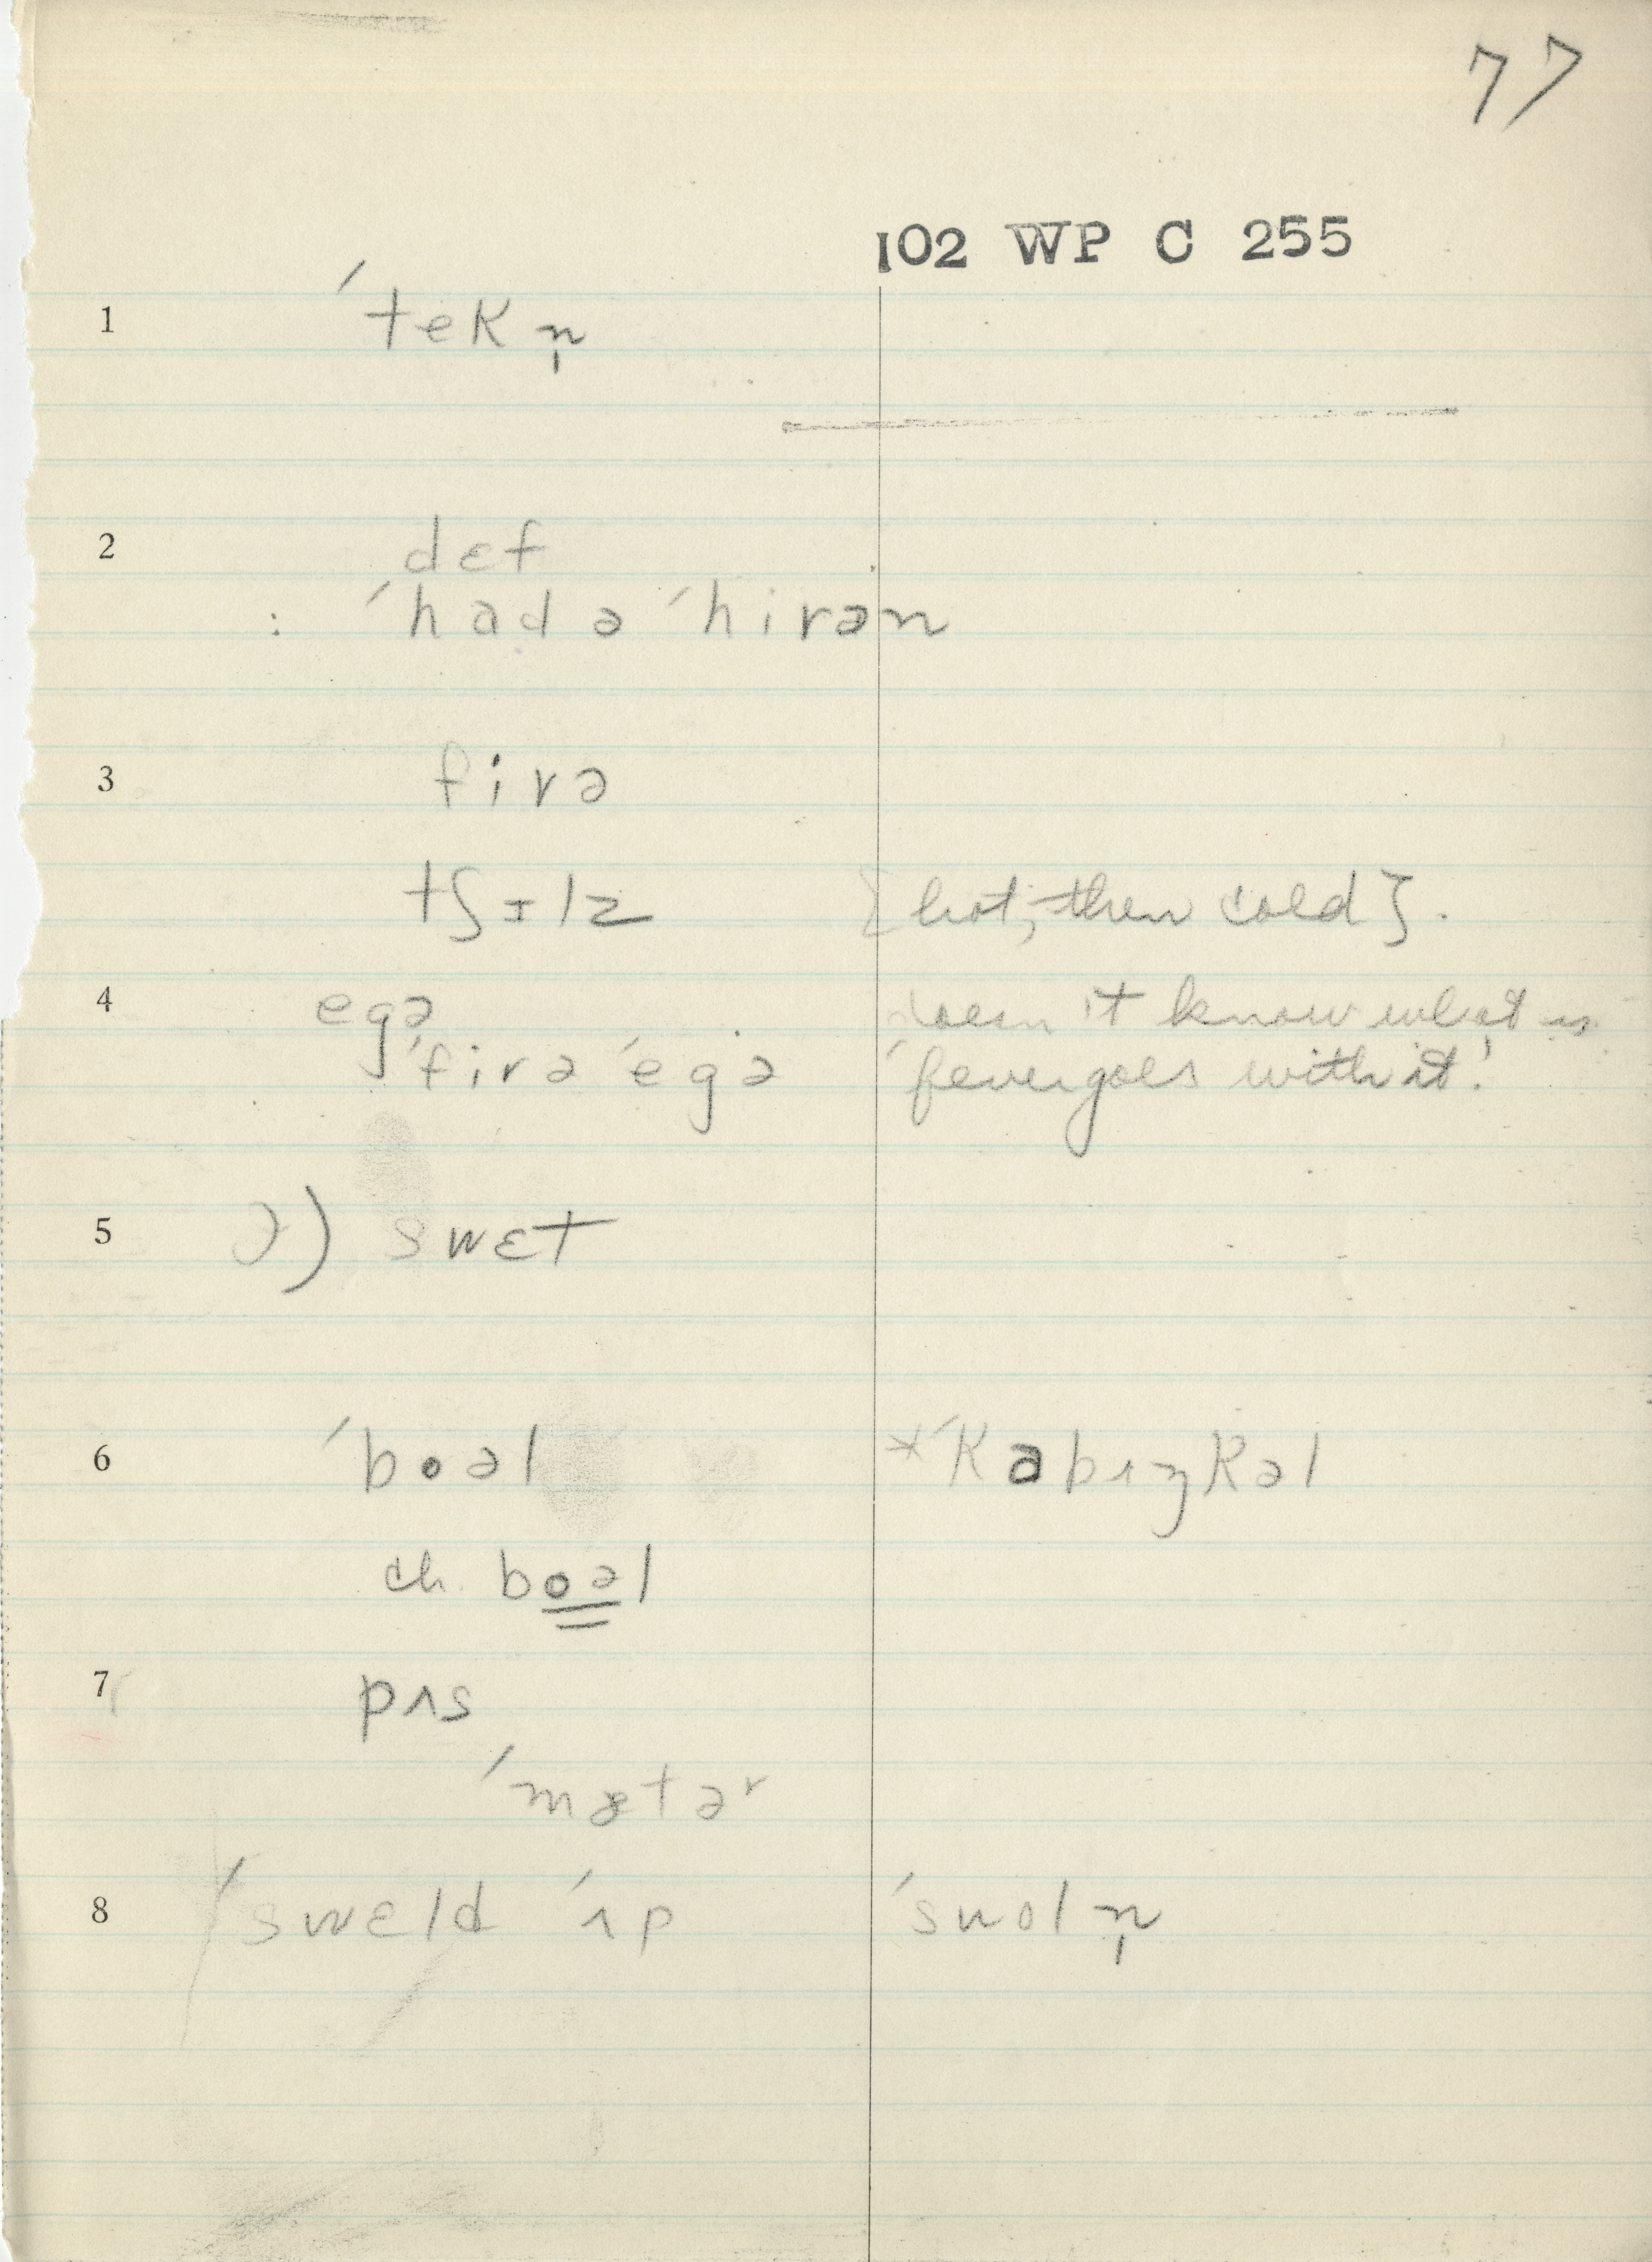 77
102 WP C 255
1 ˈtekn̩
2 dɛf
: ˈhad ə ˈhirən
3 firə
tʃɪlz [hot, then cold].
4 egə doesn't know what is
ˈfirə ˈegə ˈfever goes with it!
5 ) swɛt
6 ˈboəl *ˈkabʌŋkəl
ch. boəl
7 pʌs
ˈmætəʳ
8 ˈswɛld ˈʌp ˈswoln̩